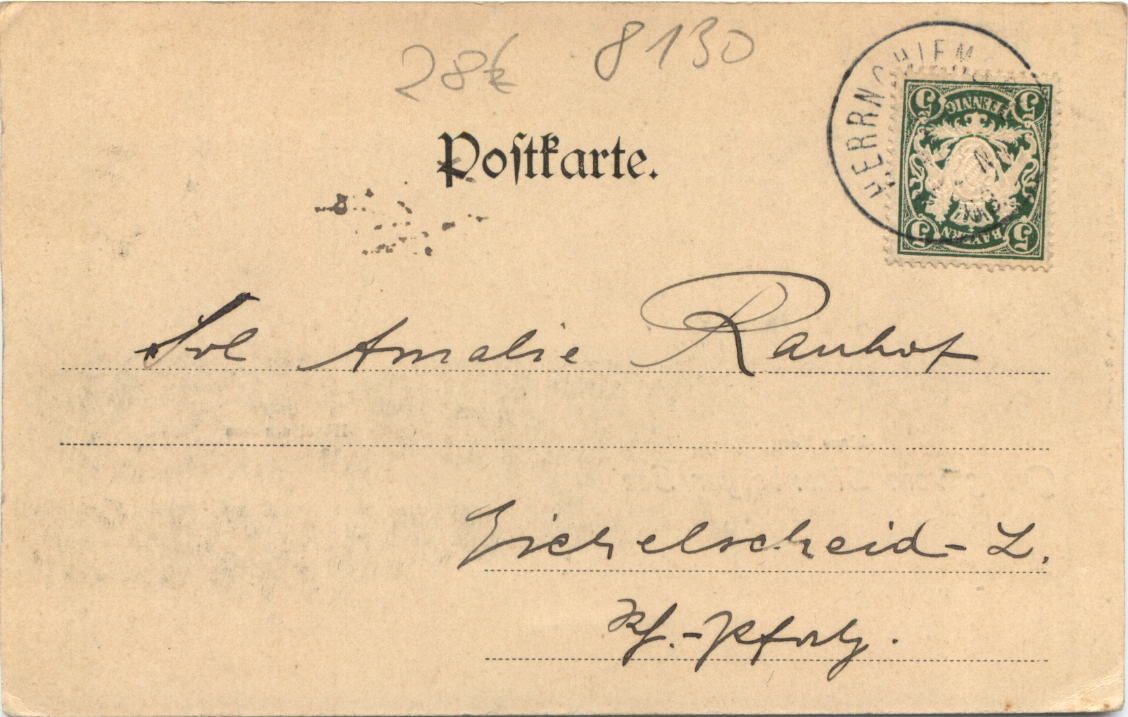 28€ 8130
HERRNCHIEM
5 PFENNIG 5
5 BAYERN 5
Postkarte.
Frl Amalie Rauhof
Eichelscheid-L.
Rh.-Pfalz.